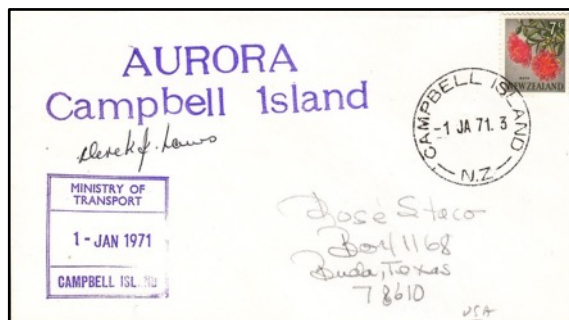 AURORA
Campbell Island
Derek J. Laws
MINISTRY OF
TRANSPORT
1 - JAN 1971
CAMPBELL ISL ND
7
NEW ZEALAND
CAMPBELL ISLAND
-1 JA 71. 3
N.Z
Rosé Steco
Box 1168
Buda, Texas
78610
USA